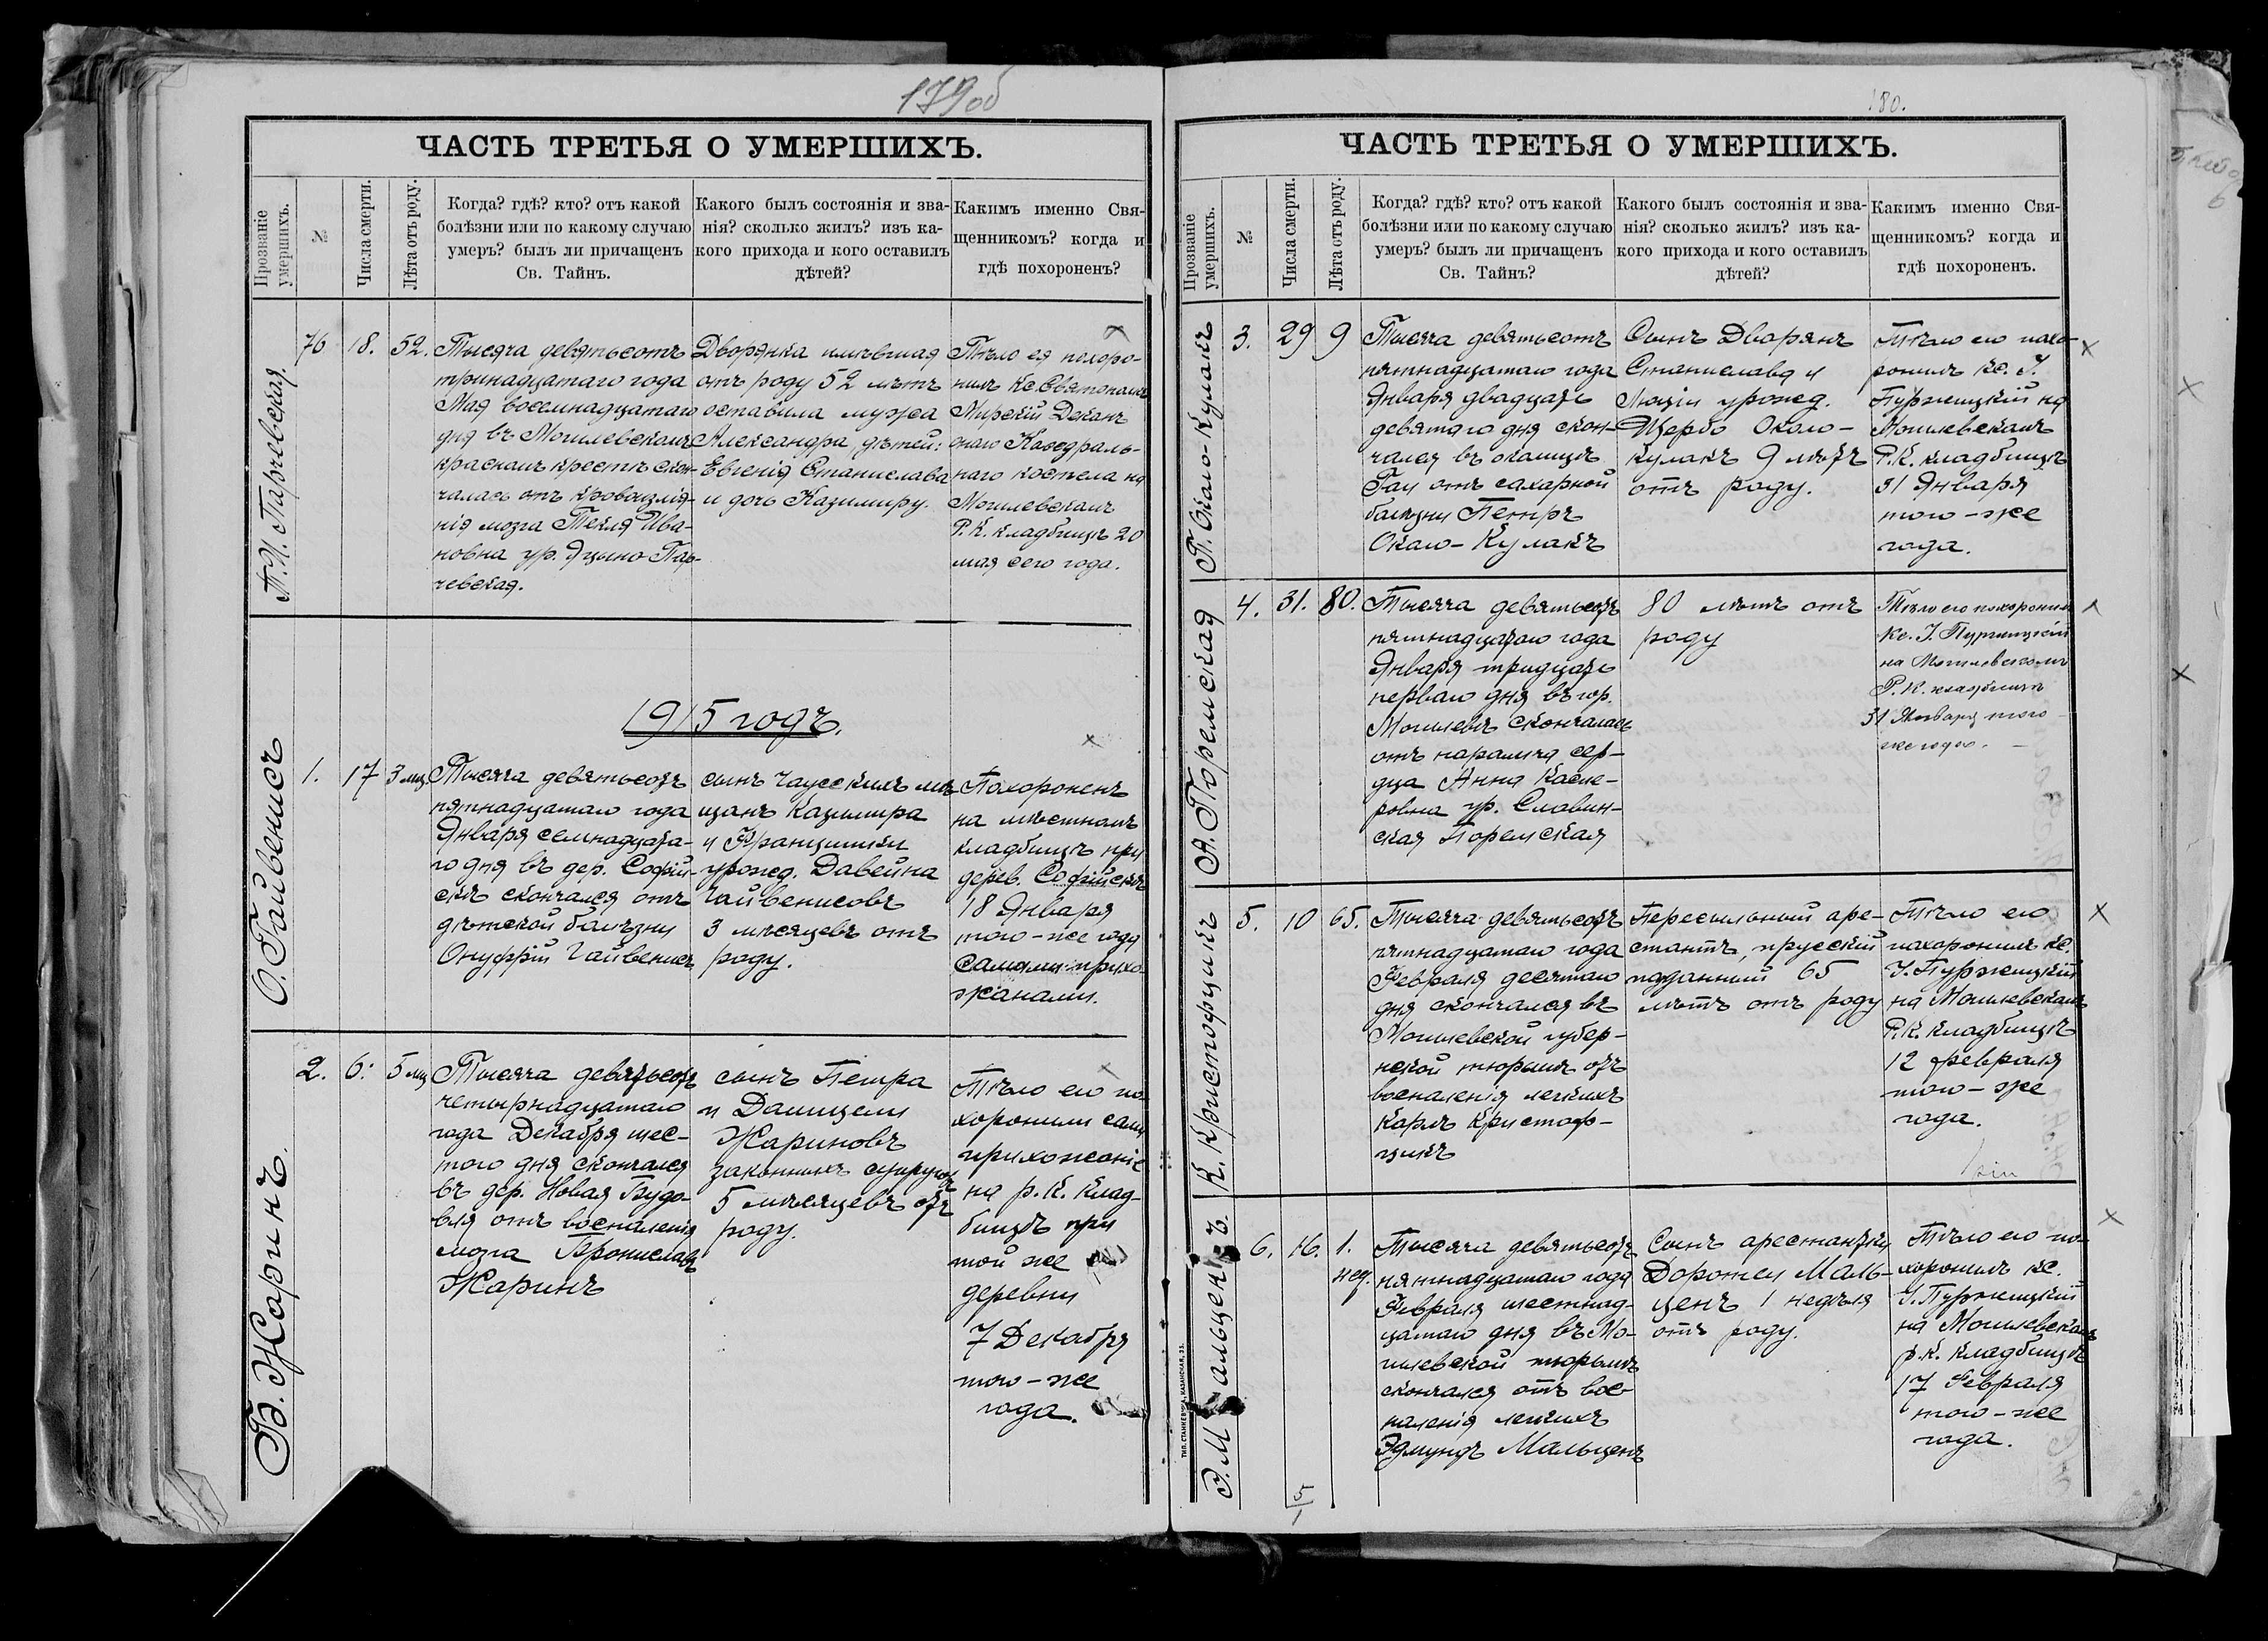 179об
ЧАСТЬ ТРЕТЬЯ О УМЕРШИХЪ.
Прозваніе умершихъ.
№
Числа смерти.
Лѣта отъ роду.
Когда? гдѣ? кто? отъ какой
болѣзни или по какому случаю
умеръ? былъ ли причащенъ
Св. Тайнъ.
Какого былъ состоянія и зва-
нія? сколько жилъ? изъ ка-
кого прихода и кого оставилъ
дѣтей?
Какимъ именно Свя-
щенникомъ? когда и
гдѣ похороненъ?
Т.И. Парчевская.
76
18.
52.
Тысяча девятьсотъ
тринадцатаго года
Мая восемнадцатаго
дня въ Могилевскомъ
красномъ крестѣ скон-
чалась отъ кровоизлія-
нія мозга Текля Ива-
новна ур. Яцыно-Пар-
чевская.
Дворянка имѣвшая
отъ роду 52 лѣтъ
оставила мужа
Александра, дѣтей:
Евгенія Станислава
и дочь Казимиру.
Тѣло ея похоро-
нилъ Кс. Святополкъ
Мирскій Деканъ
Каѳедраль-
наго костела на
Могилевскомъ
Р.К. кладбищѣ 20
мая сего года.
1915 годъ.
О. Гайвенисъ
1.
17
3 мц.
Тысяча девятьсотъ
пятнадцатаго года
Января семнадцата-
го дня въ дер. Софій-
скѣ скончался отъ
дѣтской болѣзни
Онуфрій Гайвенисъ
сынъ чаусскихъ мѣ-
щанъ Казимира
и Францишки
урожд. Давейна
Гайвенисовъ
3 мѣсяцевъ отъ
роду.
Похороненъ
на мѣстномъ
кладбищѣ при
дерев. Софійскѣ
18 Января
того-же года
самими прихо-
жанами.
Б. Жаринъ.
2.
6.
5 мц
Тысяча девятьсотъ
четырнадцатаго
года Декабря шес-
того дня скончался
въ дер. Новая Будо-
вля отъ воспаленія
мозга Брониславъ
Жаринъ
сынъ Петра
и Даницели
Жариновъ
законныхъ супруговъ
5 мѣсяцевъ отъ
роду.
Тѣло его по-
хоронили сами
прихожане
на р.К. клад-
бищѣ при
той же
деревни
7 Декабря
того-же
года.
180.
ЧАСТЬ ТРЕТЬЯ О УМЕРШИХЪ.
Прозваніе умершихъ.
№
Числа смерти.
Лѣта отъ роду.
Когда? гдѣ? кто? отъ какой
болѣзни или по какому случаю
умеръ? былъ ли причащенъ
Св. Тайнъ?
Какого былъ состоянія и зва-
нія? сколько жилъ? изъ ка-
кого прихода и кого оставилъ
дѣтей?
Какимъ именно Свя-
щенникомъ? когда и
гдѣ похороненъ.
П. Около-Кулакъ
3.
29
9
Тысяча девятьсотъ
пятнадцатаго года
Января двадцать
девятаго дня скон-
чался въ околицѣ
Гаи отъ сахарной
болѣзни Петръ
Около-Кулакъ
Сынъ Дворянъ
Станислава и
Люціи урожд.
Щербо Около-
Кулакъ 9 лѣтъ
отъ роду.
Тѣло его похо-
ронилъ кс. І.
Пуржицкій на
Могилевскомъ
Р.К. кладбищѣ
31 Января
того-же
года.
А. Поремская
4.
31.
80.
Тысяча девятьсотъ
пятнадцатаго года
Января тридцать
перваго дня въ гор.
Могилевѣ скончалась
отъ паралича сер-
дца Анна Каспе-
ровна ур. Славин-
ская Поремская
80 лѣтъ отъ
роду
Тѣло его похоронилъ
Кс. І. Пуржицкій
на Могилевскомъ
Р.К. кладбищѣ
31 Января того
же года.
К. Кристофцикъ
5.
10
65.
Тысяча девятьсотъ
пятнадцатаго года
Февраля десятаго
дня скончался въ
Могилевской губер-
нской тюрьмѣ отъ
воспаленія легкихъ
Карлъ Кристоф-
цикъ
Пересыльный аре-
стантъ, прусскій
подданный 65
лѣтъ отъ роду
Тѣло его
похоронилъ кс.
І. Пуржицкій
на Могилевскомъ
Р.К. кладбищѣ
12 февраля
того-же
года.
Э. Мальценъ.
6.
16.
1.
нед.
Тысяча девятьсотъ
пятнадцатаго года
Февраля шестнад-
цатаго дня въ Мо-
гилевской тюрьмѣ
скончался отъ вос-
паленія легкихъ
Эдмундъ Мальценъ
Сынъ арестантки
Доротеи Маль-
ценъ 1 недѣля
отъ роду.
Тѣло его по-
хоронилъ кс.
І. Пуржицкій
на Могилевскомъ
р.К. кладбищѣ
17 Февраля
того-же
года.